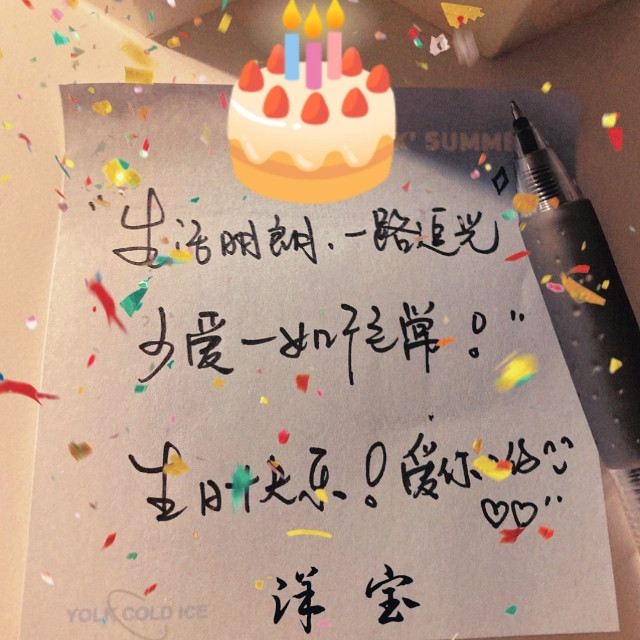 SUMM
“生活明朗、一路追光
可爱一如往常!”
生日快乐!爱你
♡♡
洋 宝
YOLK COLD ICE